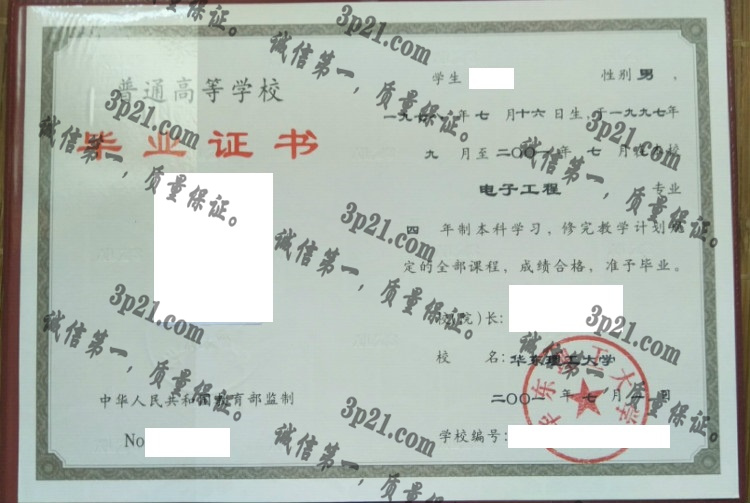 普通高等学校
毕业证书
中华人民共和国教育部监制
No
学生 性别 男 ，
一九七 年 七 月十六日生，于一九九七年
九 月至 二〇〇一 年 七 月在 校
电子工程 专业
四 年制本科学习，修完教学计划
定的全部课程，成绩合格，准予毕业。
校(院)长：
校 名：华东理工大学
二〇〇一 年 七 月 一 日
学校编号：
华东理工大学
3p21.com
诚信第一，质量保证。
3p21.com
诚信第一，质量保证。
3p21.com
诚信第一，质量保证。
3p21.com
诚信第一，质量保证。
3p21.com
诚信第一，质量保证。
3p21.com
诚信第一，质量保证。
3p21.com
诚信第一，质量保证。